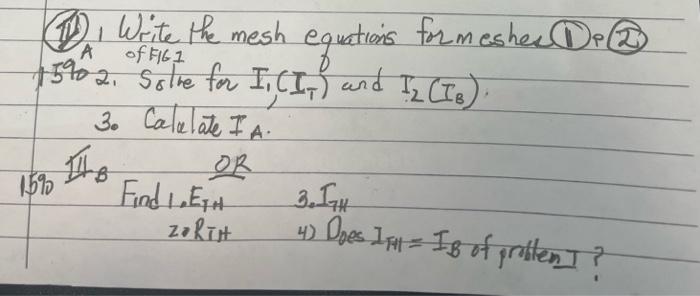 III 1 Write the mesh equations for meshes 1 & 2
A of FIG 1
15% 2. Solve for I1 (IT) and I2 (IB).
3. Calulate IA.
III B OR
15% Find 1. ETH 3. ITH
2. RTH 4) Does ITH = IB of problem I ?